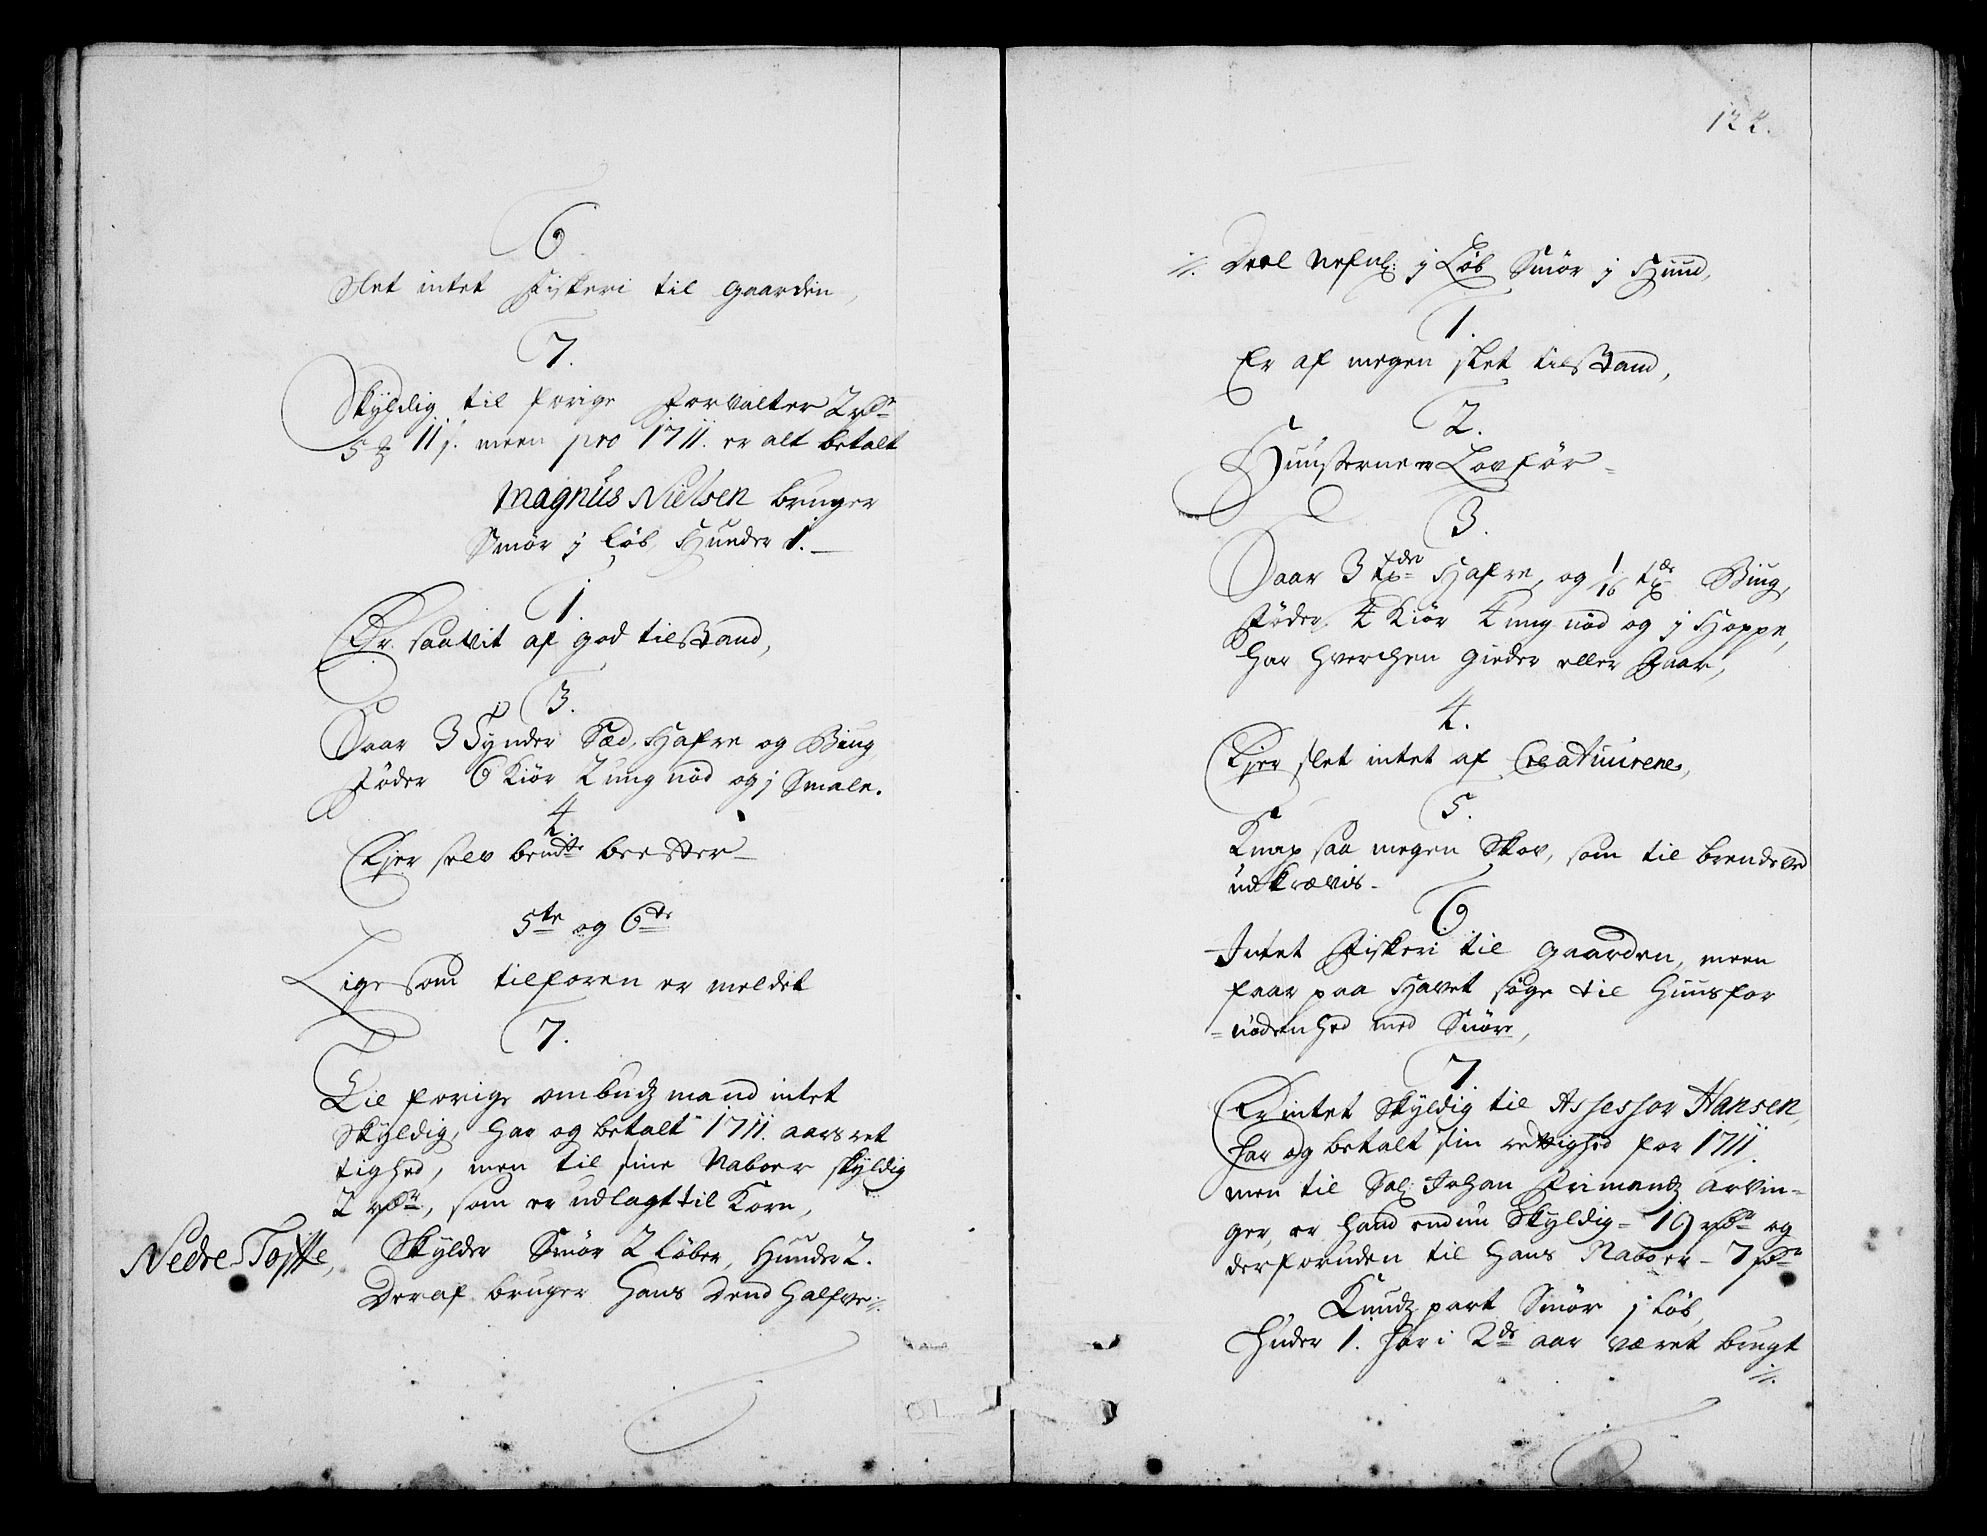 6.
Slet intet Fiskeri til gaarden,
7.
Skyldig til forige Forvalter 2 rdr
5 ₰ 11 s. meen pro 1711. er alt betalt
Magnus Nielsen bruger
Smör j Löb, Huuder 1.
1.
Er saavit af god tilstand,
3.
Saar 3 Tynder Sæd, Hafre og Biug
Föder 6 Kiör 2 ung nöd og j Smale.
4.
Ejer selv beste beester
5te og 6te
Lige som tilforen er meldet
7.
Til forige ombudzmand intet
Skyldig, har og betalt 1711. aars ret
tighed, men til sine Naboer skyldig
2 rdr, som er udlagt til Korn,
Nedre Tojffte,
Skylder Smör 2 Löber, Huuder 2.
Deraf bruger Hans Dend Halfve
122.
Deel Nefnl: j Löb Smör j Huud,
1.
Er af megen slet tilstand,
2.
Huuserne er Lovför
3.
Saar 3 tdr Hafre, og 1/16 td Biug,
Föder 4 Kiör 4 ung nöd og j Hoppe,
har hverchen gieder eller Faar,
4.
Ejer slet intet af Creatuurene,
5.
Knap saa megen Skov, som til brendeved
udkrævis.
6.
Intet Fiskeri til gaarden, meen
faar paa Havet söge til Huusfor
nödenhed med Snöre,
7.
Er intet Skyldig til Assessor Hansen,
har og betalt sin rettighed for 1711.
men til Sal: Johan Frimandz arvin-
ger, er hand endnu Skyldig - 19 rdr og
derforuden til hans Naboer - 7 rdr
Knudz part Smör j Löb,
Huder 1. har i 2de aar været brugt